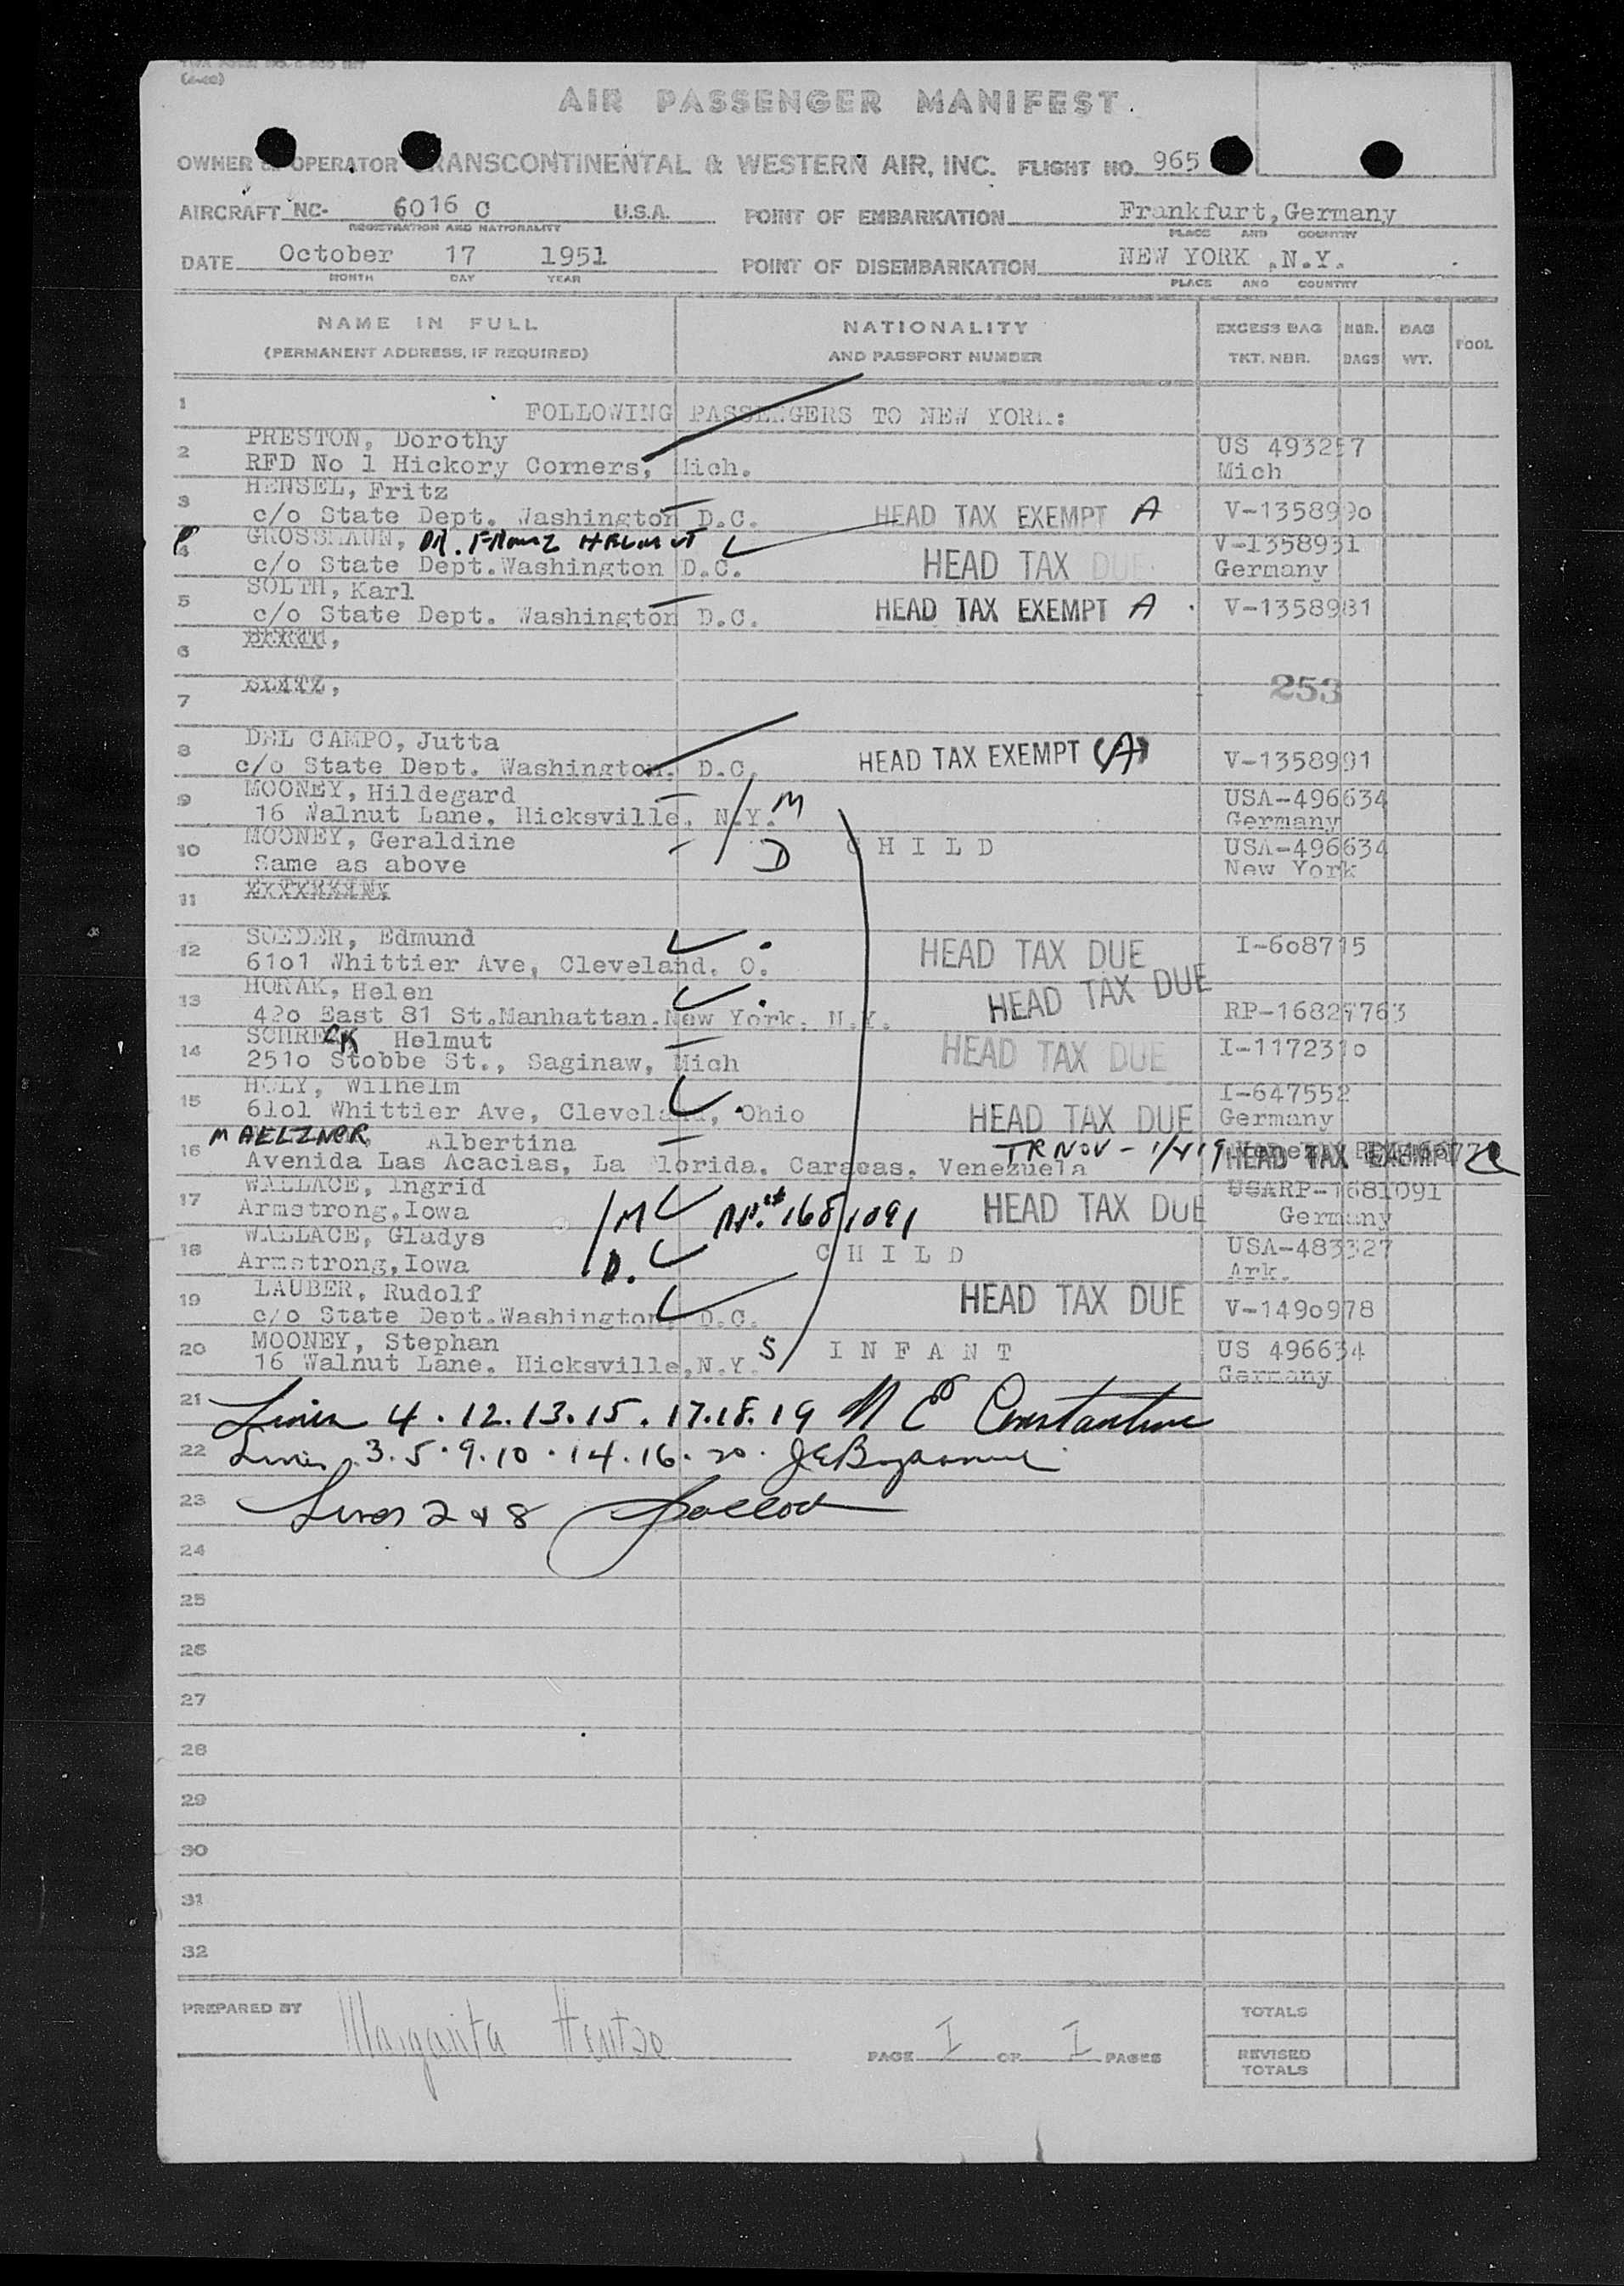 (4-48)
AIR PASSENGER MANIFEST.
OWNER OPERATOR TRANSCONTINENTAL & WESTERN AIR, INC. FLIGHT NO. 965
AIRCRAFT NC- 6016 C U.S.A. POINT OF EMBARKATION Frankfurt, Germany
REGISTRATION AND NATIONALITY PLACE AND COUNTRY
DATE October 17 1951 POINT OF DISEMBARKATION NEW YORK ,N.Y.
MONTH DAY YEAR PLACE AND COUNTRY
NAME IN FULL NATIONALITY EXCESS BAG NBR. BAG POOL
(PERMANENT ADDRESS, IF REQUIRED) AND PASSPORT NUMBER TKT. NBR. BAGS WT.
1 FOLLOWING PASSENGERS TO NEW YORK:
2 PRESTON, Dorothy US 493257
RFD No 1 Hickory Corners, Mich. Mich
3 HENSEL, Fritz
c/o State Dept. Washington D.C. HEAD TAX EXEMPT A V-1358990
4 GROSSMANN, DR. FRANZ HELMUT V-1358931
c/o State Dept.Washington D.C. HEAD TAX DUE Germany
5 SOLTH, Karl
c/o State Dept. Washington D.C. HEAD TAX EXEMPT A V-1358981
6
7 253
8 DEL CAMPO, Jutta
c/o State Dept. Washington. D.C. HEAD TAX EXEMPT (A) V-1358991
9 MOONEY, Hildegard USA-496634
16 Walnut Lane, Hicksville, N.Y. M Germany
10 MOONEY, Geraldine CHILD USA-496634
Same as above D New York
11
12 SOEDER, Edmund HEAD TAX DUE I-608715
6101 Whittier Ave, Cleveland. O.
13 HORAK, Helen HEAD TAX DUE
420 East 81 St.Manhattan.New York. N.Y. RP-16827763
14 SCHRECK Helmut HEAD TAX DUE I-1172310
2510 Stobbe St., Saginaw, Mich
15 HOLY, Wilhelm I-647552
6101 Whittier Ave, Cleveland, Ohio HEAD TAX DUE Germany
16 MAELZNER Albertina TR NOV - HEAD TAX EXEMPT
Avenida Las Acacias, La Florida. Caracas. Venezuela
17 WALLACE, Ingrid USARP-1681091
Armstrong,Iowa M 1681091 HEAD TAX DUE Germany
18 WALLACE, Gladys CHILD USA-483327
Armstrong,Iowa D. Ark.
19 LAUBER, Rudolf HEAD TAX DUE
c/o State Dept.Washington, D.C. V-1490978
20 MOONEY, Stephan S INFANT US 496634
16 Walnut Lane. Hicksville,N.Y. Germany
21 Lines 4.12.13.15.17.18.19 N E Constantine
22 Lines 3.5.9.10.14.16.20.
23 Lines 2 & 8
24
25
26
27
28
29
30
31
32
PREPARED BY Margarita TOTALS
PAGE I OF I PAGES REVISED
TOTALS